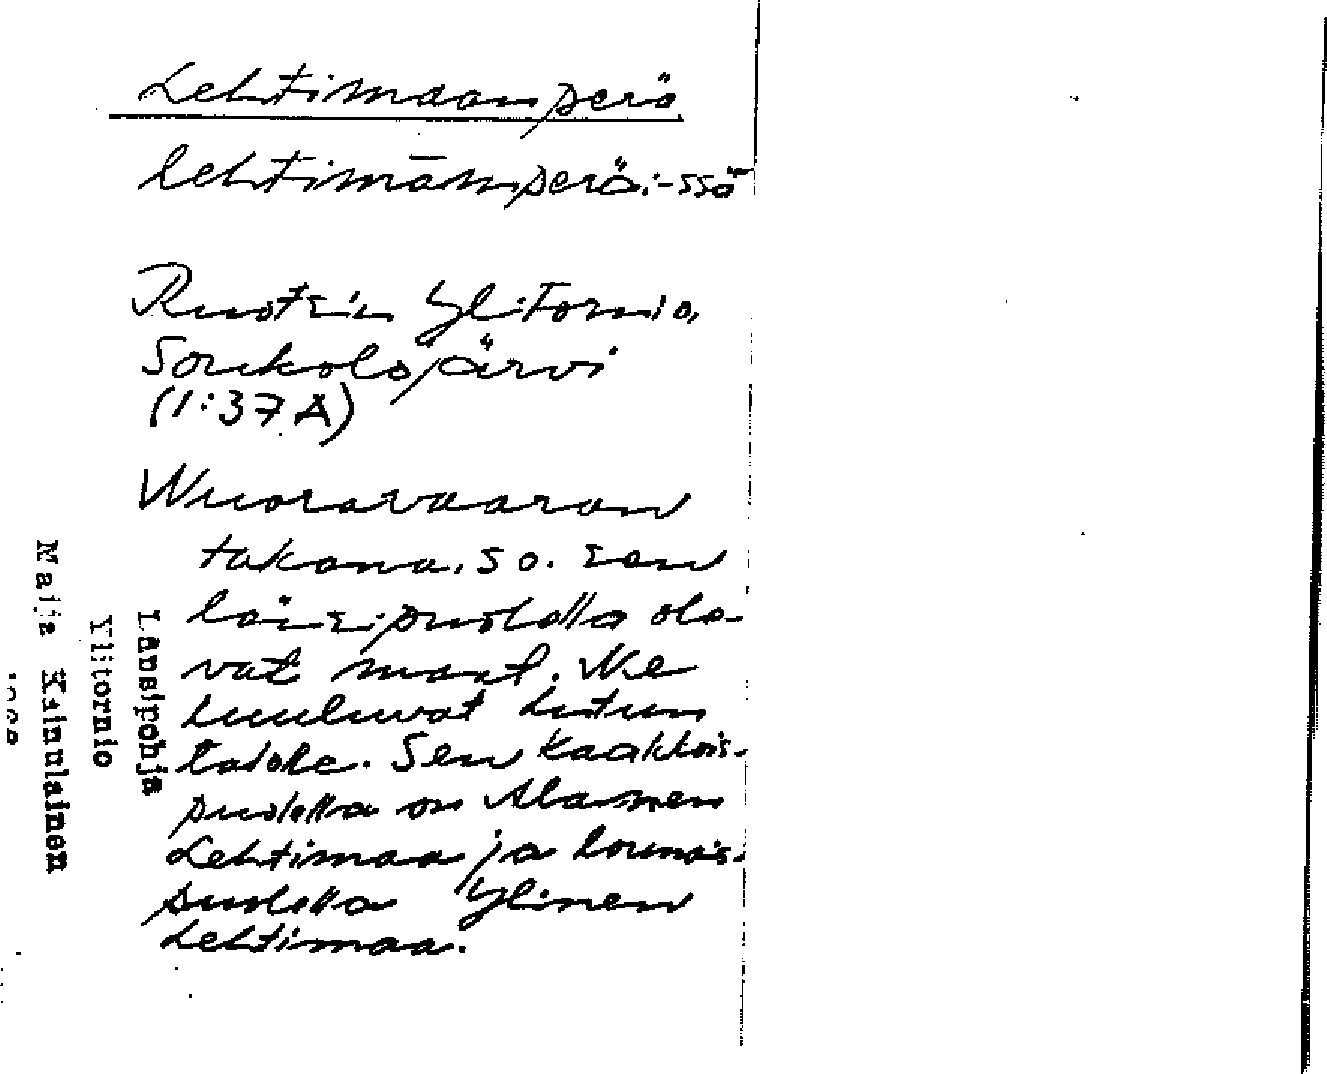 Lehtimaanperä
lehtimānperäi-ssä
Ruotsin Ylitornio,
Soukolojärvi
(1:37 A)
Wuoravaaran
takana, so. sen
länsipuolella ola-
vat maat. Ne
kuuluvat
talolle. Sen kaakkois-
puolella on Alanen
Lehtimaa ja lounais-
puolella Ylinen
Lehtimaa.
Länsipohja
Ylitornio
Maija Kainulainen